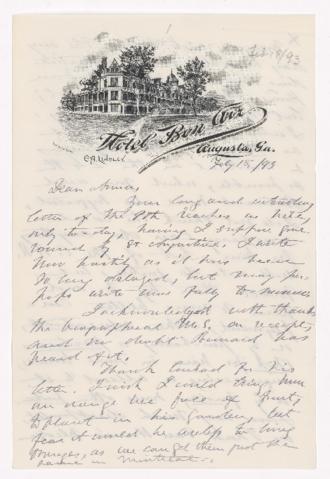 Feb 15/93
Hotel Bon Air
Augusta, Ga.
C.A. Linsley
Feby 15/93
Dear Anna,
Your long and interesting
letter of the 8th reaches us here
only to-day, having I suppose gone
round by
now hastily as it has been
so long delayed, but may per-
haps write more fully to-morrow
I acknowledged with thanks
the biographical M.S. on receipt,
and no doubt Bernard has
heard of it.
Thank for his
letter. I wish I could bring him
an orange tree full of fruit,
to plant in his garden, but
fear it would be useless to bring
oranges, as we can get them just the
same in Montreal.